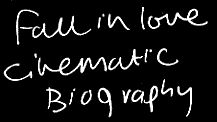 Fall in love
cinematic
Biography